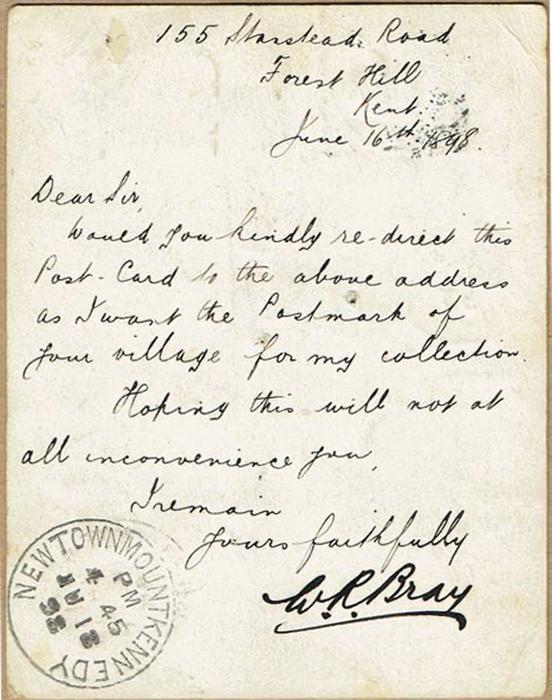 155 Stanstead Road
Forest Hill
Kent.
June 16th 1898.
Dear Sir,
Would you kindly re-direct this
Post-Card to the above address
as I want the Postmark of
your village for my collection.
Hoping this will not at
all inconvenience you,
I remain
Yours faithfully
W. R. Bray
NEWTOWNMOUNTKENNEDY
4 45
PM
JU 18
98